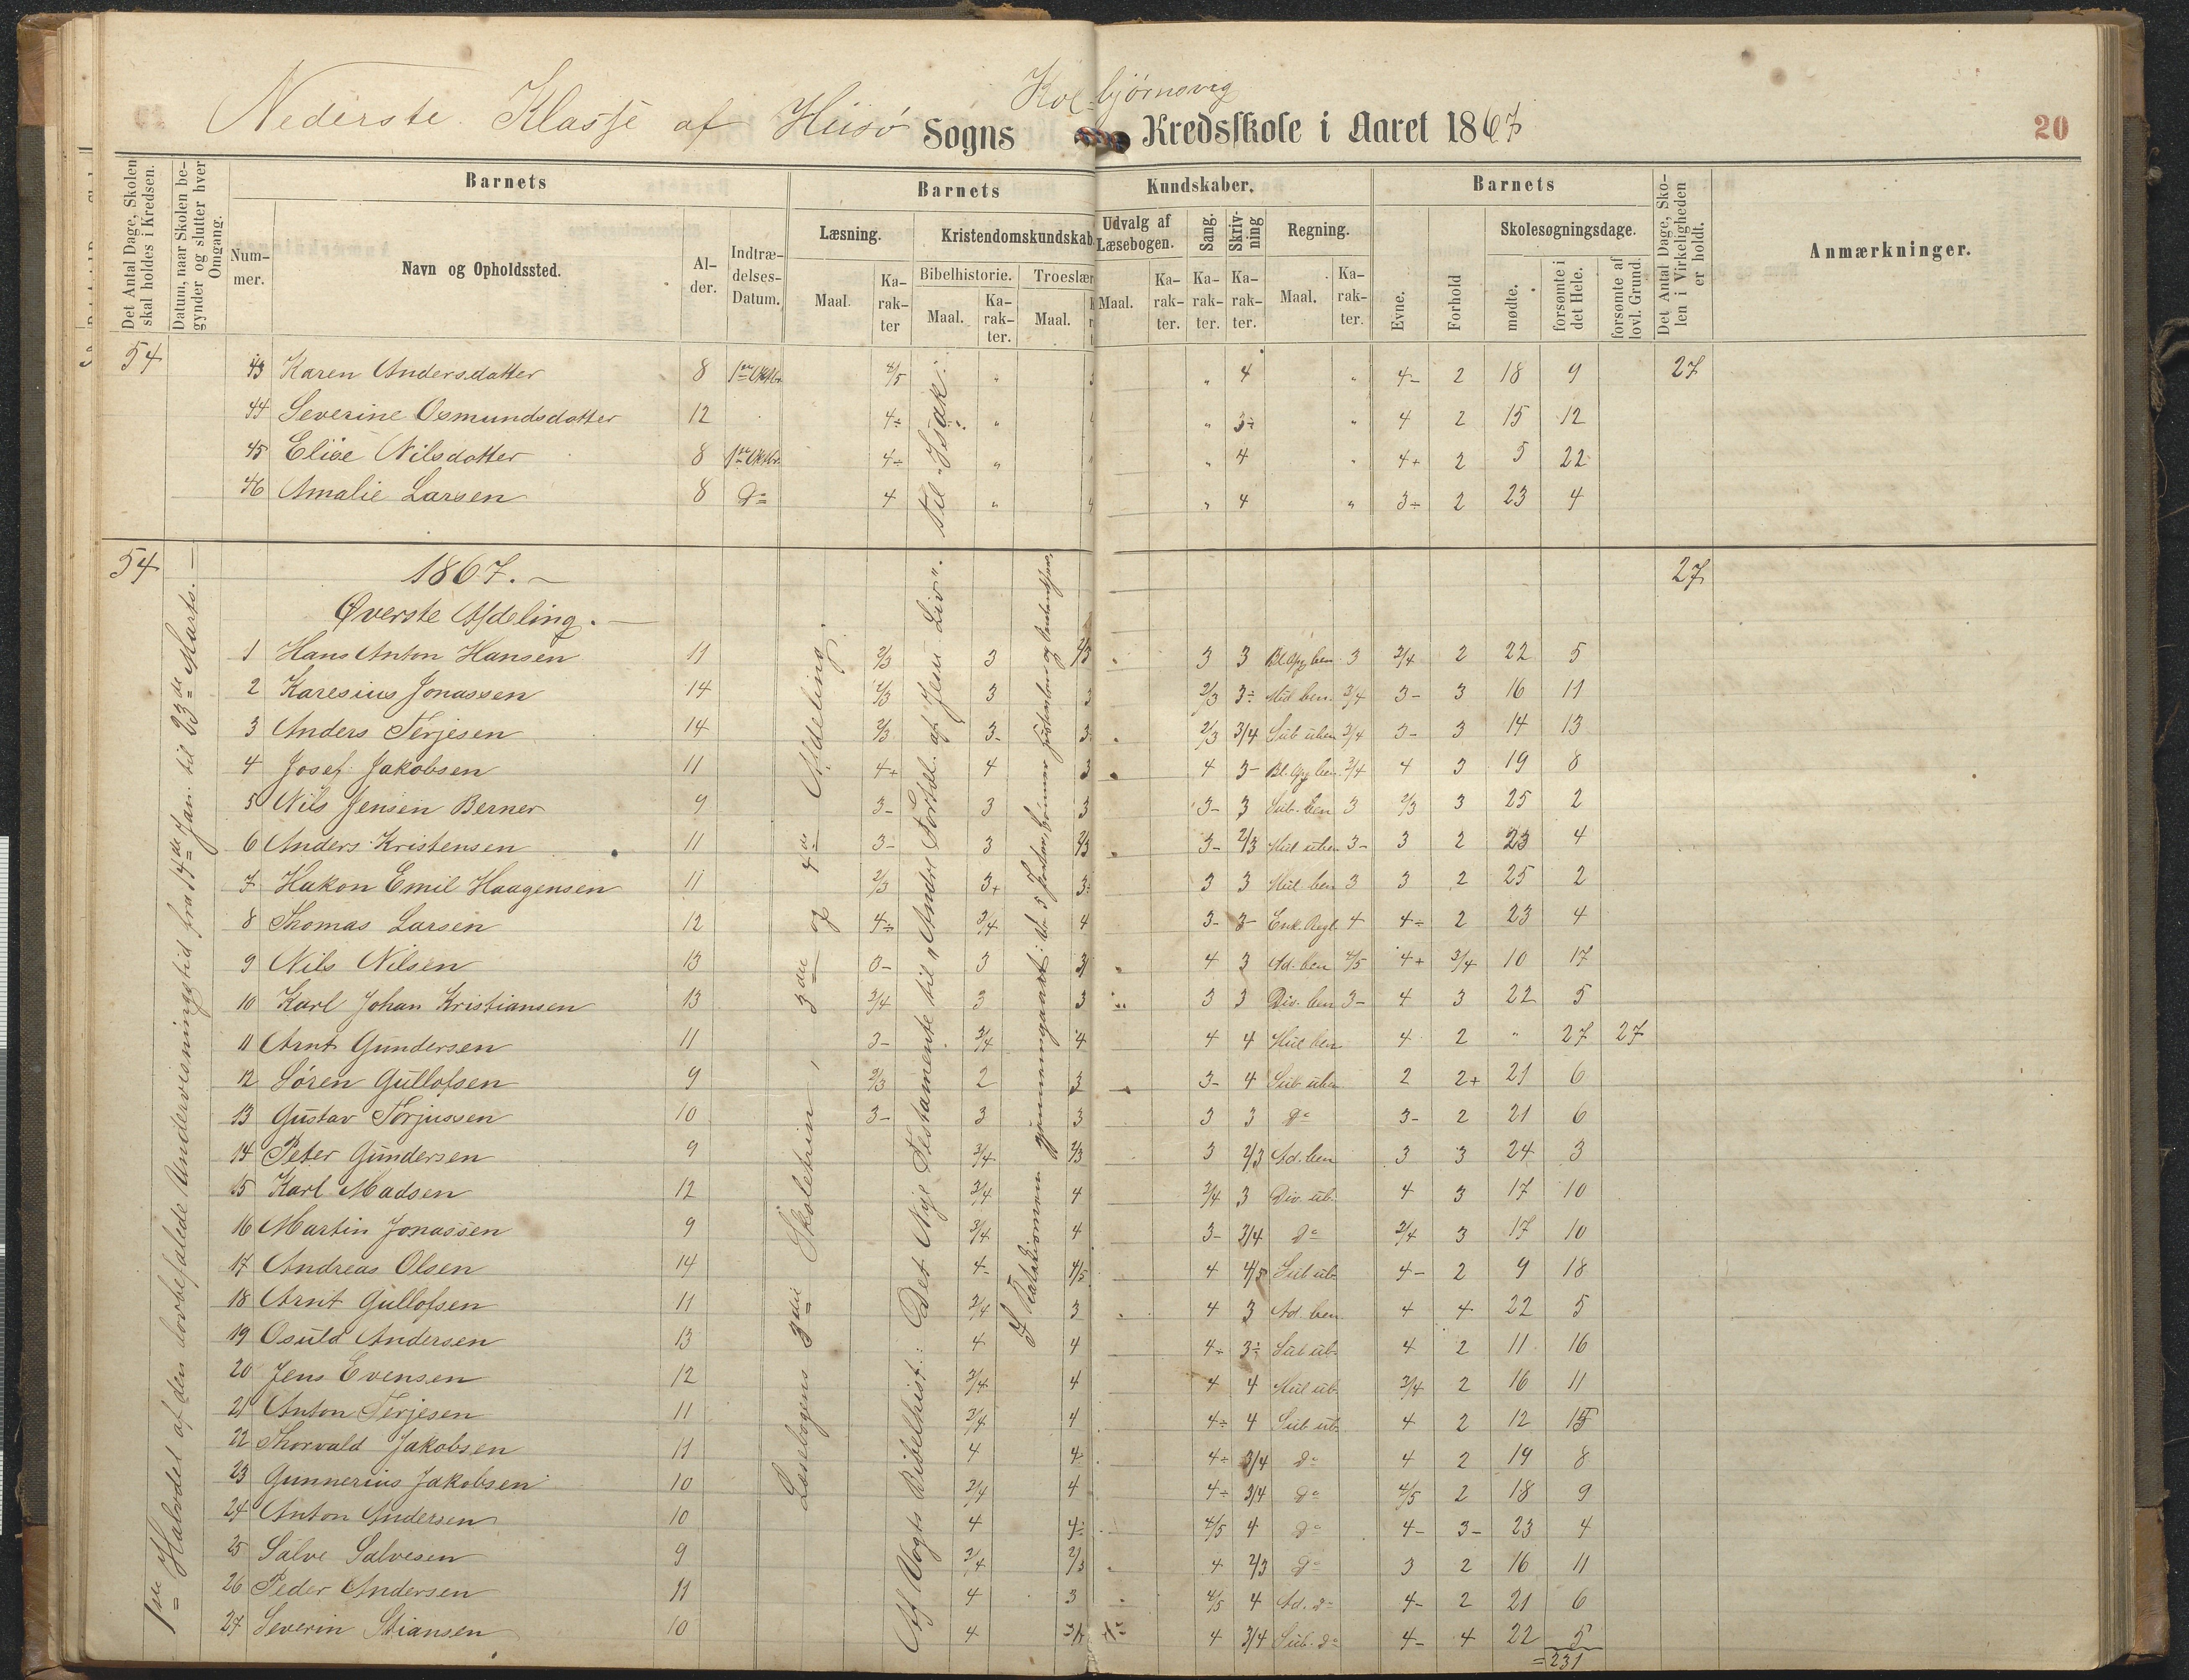 Nederste Klasse af Hiisø Sogns Kolbjørnsvig Kredsskole i Aaret 1867
20
Det Antal Dage, Skolen skal holdes i Kredsen.
Datum, naar Skolen begynder og slutter hver Omgang.
Barnets
Nummer.
Navn og Opholdssted.
Alder.
Indtrædelses-Datum.
Barnets Kundskaber.
Læsning.
Maal.
Karakter
Kristendomskundskab.
Bibelhistorie.
Maal.
Karakter.
Troeslære
Maal.
Udvalg af Læsebogen.
Maal.
Karakter.
Sang.
Karakter.
Skrivning
Karakter.
Regning.
Maal.
Karakter.
Barnets
Evne.
Forhold
Skolesøgningsdage.
mødte.
forsømte i det Hele.
forsømte af lovl. Grund.
Det Antal Dage, Skolen i Virkeligheden er holdt.
Anmærkninger.
54 43 Karen Andersdatter 8 1ste Oktbr. 4/5 " " 4 " 4- 2 18 9 27
44 Severine Osmundsdatter 12 4÷ " " 3÷ " 4 2 15 12
45 Elise Nilsdatter 8 1ste Oktbr. 4÷ " " 4 " 4+ 2 5 22
46 Amalie Larsen 8 do 4 " " 4 " 3÷ 2 23 4
til "Isak".
54 1867.- 27
Øverste Afdeling.
1ste Halvdel af den lovbefalede Undervisningstid fra 14de Jan. til 23de Marts.
Læsebogens 3die Skoletrin, 3die og 4de Afdeling.
Af Vogts Bibelhist.: Det Nye Testamente til "Andre Fortæl. af Jesu Liv".
1 Hans Anton Hansen 11 2/3 3 2/3 3 3 Bl. Op. ben 3 3/4 2 22 5
2 Karesius Jonassen 14 2/3 3 3 2/3 3÷ Mid ben. 3/4 3- 3 16 11
3 Anders Terjesen 14 2/3 3- 3 2/3 3/4 Sub uben 3/4 3- 3 14 13
4 Josef Jakobsen 11 4+ 4 3 4 3- Bl. Op ben. 3/4 4 3 19 8
5 Nils Jensen Berner 9 3- 3 3 3- 3 Sub. ben 3 2/3 3 25 2
6 Anders Kristensen 11 3- 3 2/3 3- 2/3 Mul uben 3- 3 2 23 4
7 Hakon Emil Haagensen 11 2/3 3+ 3 3 3 Mul. ben 3 3 2 25 2
8 Thomas Larsen 12 4÷ 3/4 4 3- 3- Enk. Regl. 4 4÷ 2 23 4
9 Nils Nilsen 13 3- 3 3 4 3 Ad. ben 4/5 4+ 3/4 10 17
10 Karl Johan Kristiansen 13 3/4 3 3 3 3 Div. ben 3- 4 3 22 5
11 Arnt Gundersen 11 3- 3/4 4 4 4 Mul ben 4 2 " 27 27
12 Søren Gullofsen 9 2/3 2 3 3- 4 Sub uben 2 2+ 21 6
13 Gustav Torjussen 10 3- 3 3 3 3 do 3- 2 21 6
14 Peter Gundersen 9 3/4 2/3 3 2/3 Ad. ben 3 3 24 3
15 Karl Madsen 12 3/4 4 3/4 3 Div. ub. 4 3 17 10
16 Martin Jonassen 9 3/4 4 3- 3/4 do 3/4 3 17 10
17 Andreas Olsen 14 4- 4/5 4 4/5 Sub ub. 4- 2 9 18
18 Arnt Gullofsen 11 3/4 3 4 3 Ad. ben 4 4 22 5
19 Osuld Andersen 13 4 4 4+ 3÷ Sub ub. 4 2 11 16
20 Jens Evensen 12 3/4 4 4 4 Mul ub. 3/4 2 16 11
21 Anton Terjesen 11 3/4 4 4÷ 4 Sub ub. 4 2 12 15
22 Thorvald Jakobsen 11 4 4 4÷ 3/4 do 4 2 19 8
23 Gunnerius Jakobsen 10 3/4 4 4÷ 3/4 do 4/5 2 18 9
24 Anton Andersen 10 4 4÷ 4/5 4 do 4- 3- 23 4
25 Salve Salvesen 9 3/4 2/3 4 2/3 do 3 2 16 11
26 Peder Andersen 11 4 3 4/5 4 Ad. do 4- 2 21 6
27 Severin Stiansen 10 4 3/4 4 3/4 Sub. do 4- 4 22 5
=231